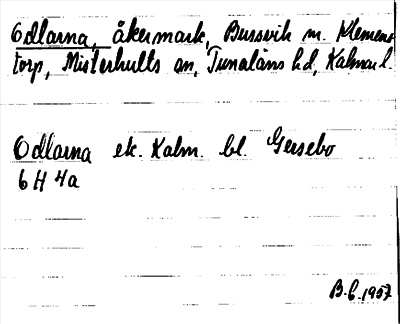 Odlarna, åkermark, Bussvik m. Klemens
torp, Misterhults sn, Tunaläns hd, Kalmar l.
Odlarna ek. Kalm. bl. Gersebo
6 H 4a
B.b. 1957